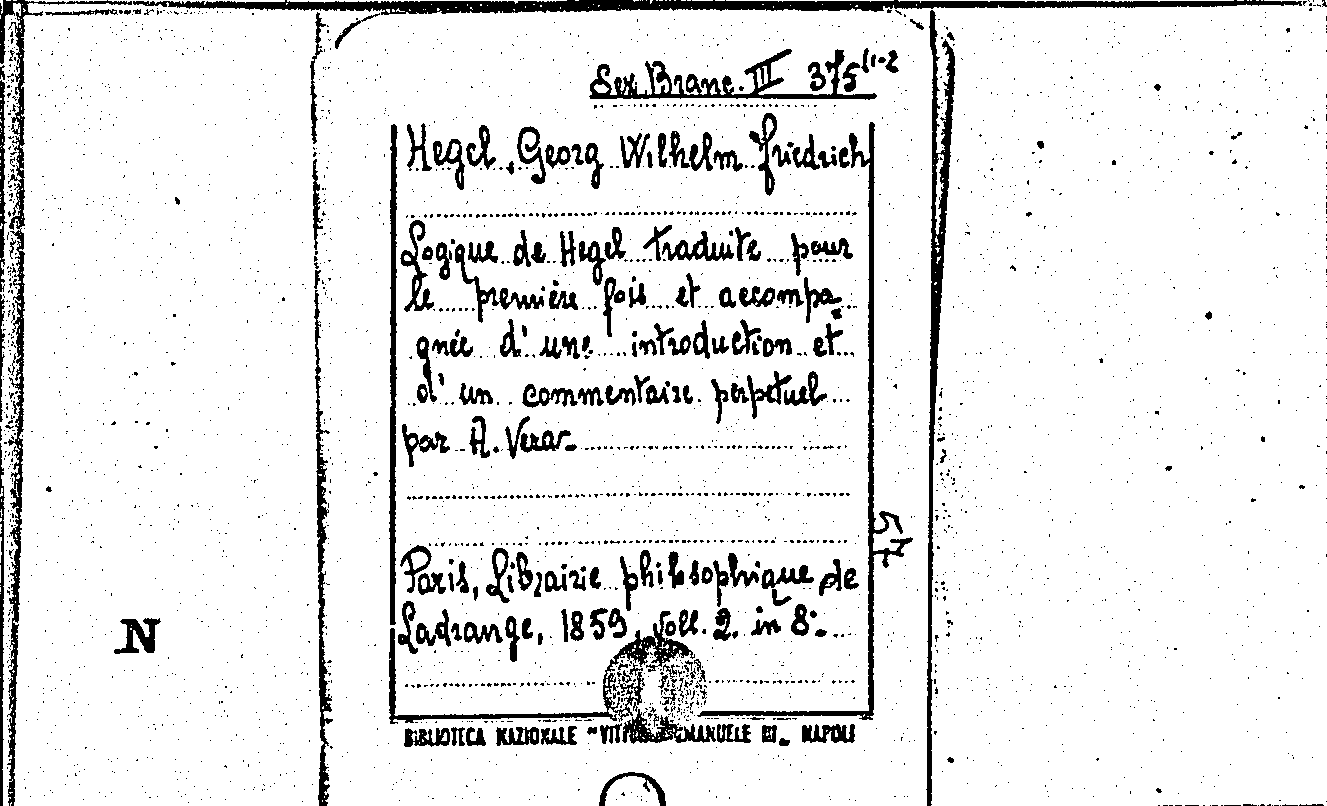 Sez. Branc. III 375 (1-2
Hegel, Georg Wilhelm Friedrich
Logique de Hegel traduite pour
le première fois et accompa-
gnée d'une introduction et
d'un commentaire perpetuel
par A. Vera
Paris, Librairie philosophique de
Ladrange, 1859, voll. 2. in 8°.
57
N
BIBLIOTECA NAZIONALE "VITTORIO EMANUELE III" NAPOLI